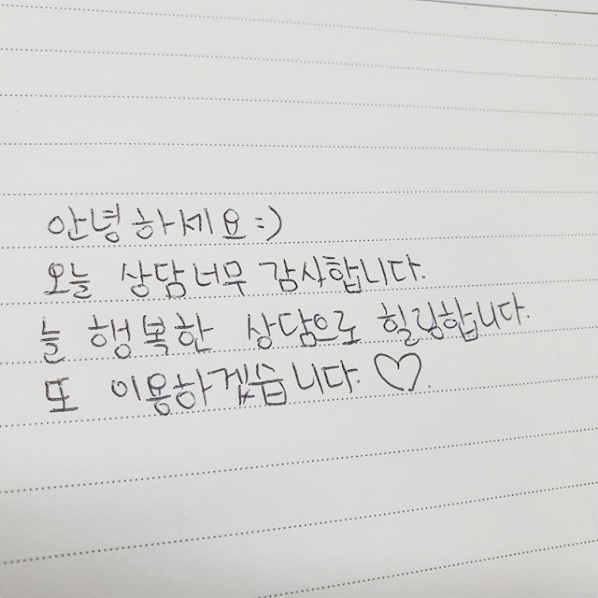 안녕하세요:)
오늘 상담너무 감사합니다.
늘 행복한 상담으로 힐링합니다.
또 이용하겠습니다. ♡.